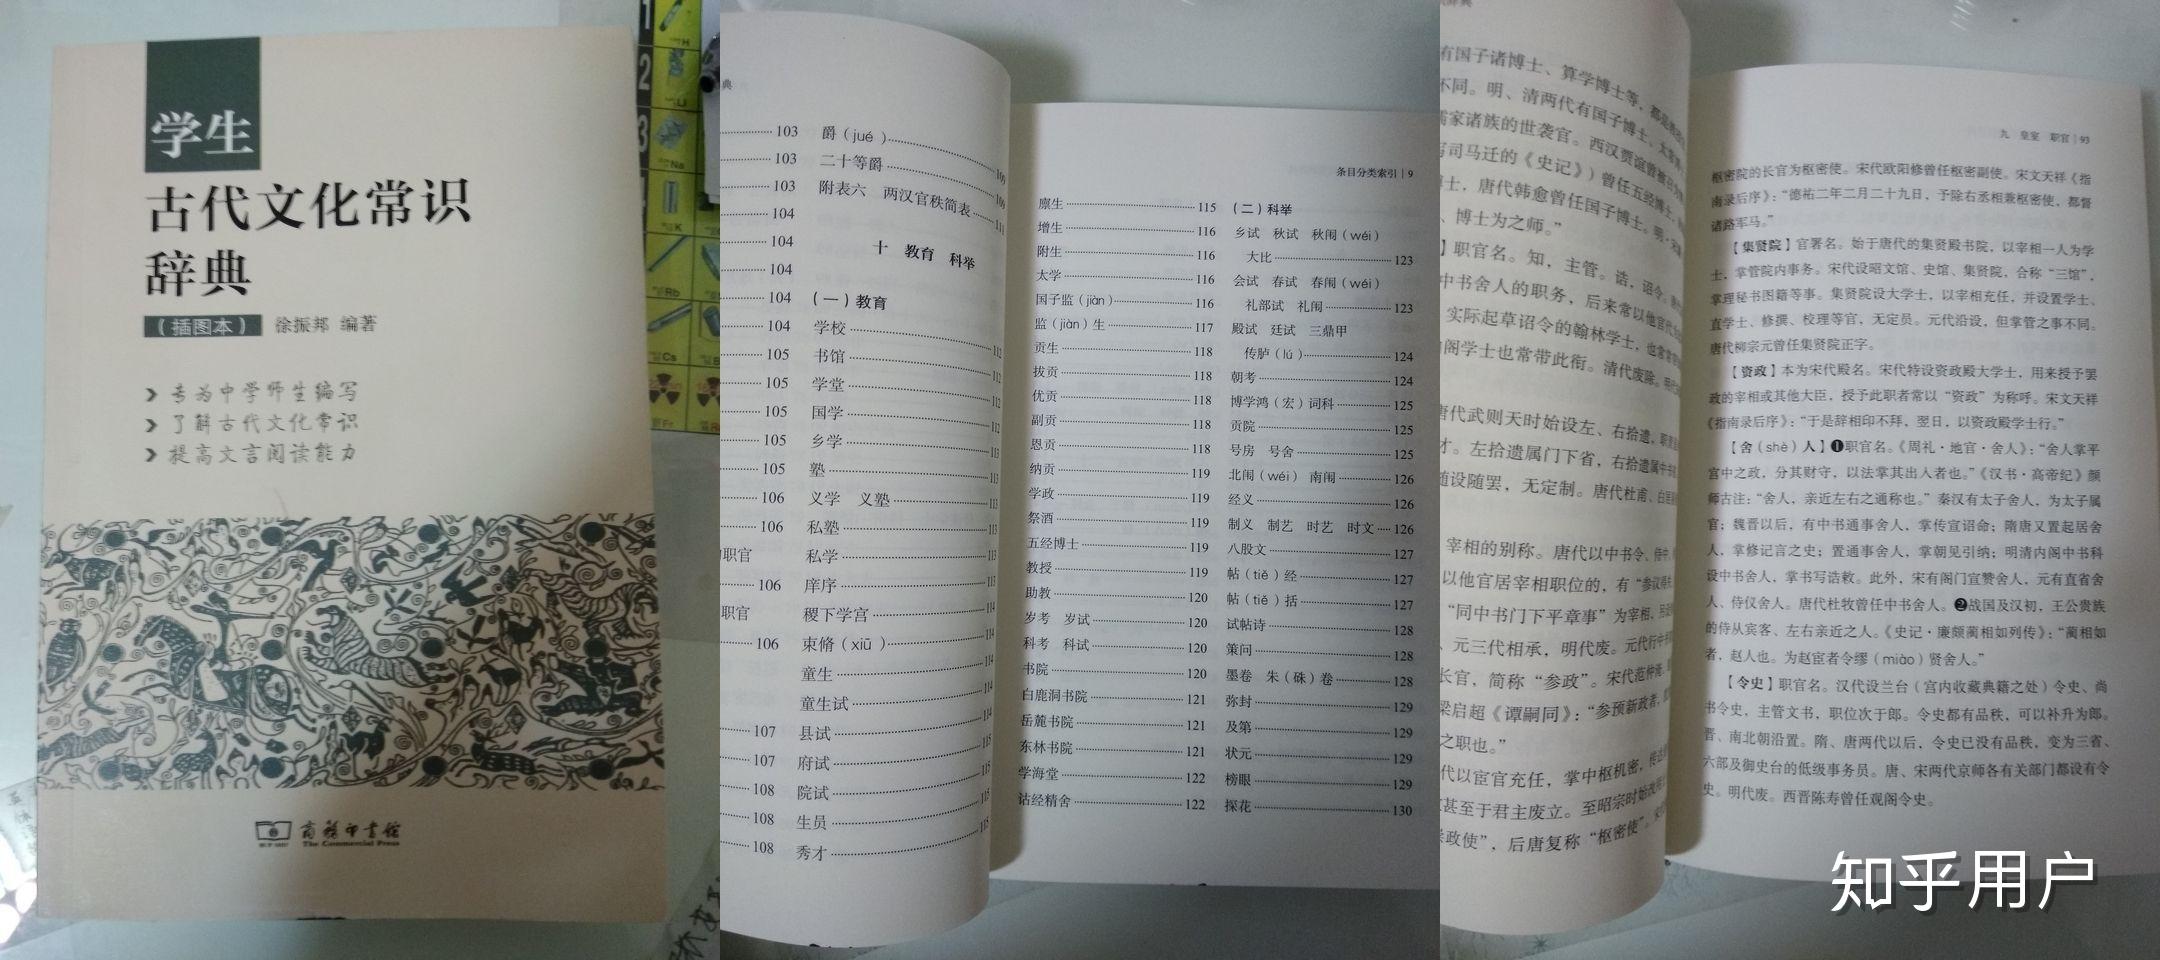 学生
古代文化常识
辞典
（插图本） 徐振邦 编著
专为中学师生编写
了解古代文化常识
提高文言阅读能力
商务印书馆
The Commercial Press
典
103
103
103
104
104
104
104
104
105
105
105
105
105
106
106
职官
106
职官
106
107
107
108
108
108
爵（jué）
二十等爵 109
附表六 两汉官秩简表 111
十 教育 科举
（一）教育
学校 112
书馆 112
学堂 112
国学 112
乡学 113
塾 113
义学 义塾 113
私塾 113
私学 113
庠序 113
稷下学宫 114
束脩（xiū） 114
童生 114
童生试 114
县试 114
府试 115
院试 115
生员 115
秀才 115
条目分类索引 | 9
廪生 115
增生 116
附生 116
太学 116
国子监（jiàn） 116
监（jiàn）生 117
贡生 118
拔贡 118
优贡 118
副贡 118
恩贡 118
纳贡 119
学政 119
祭酒 119
五经博士 119
教授 119
助教 120
岁考 岁试 120
科考 科试 120
书院 120
白鹿洞书院 121
岳麓书院 121
东林书院 121
学海堂 122
诂经精舍 122
（二）科举
乡试 秋试 秋闱（wéi）
大比 123
会试 春试 春闱（wéi）
礼部试 礼闱 123
殿试 廷试 三鼎甲
传胪（lú） 124
朝考 124
博学鸿（宏）词科 125
贡院 125
号房 号舍 125
北闱（wéi） 南闱 126
经义 126
制义 制艺 时艺 时文 126
八股文 127
帖（tiě）经 127
帖（tiě）括 127
试帖诗 128
策问 128
墨卷 朱（硃）卷 128
弥封 129
及第 129
状元 129
榜眼 129
探花 130
辞典
有国子诸博士、算学博士等，都是
不同。明、清两代有国子博士、太常博士
儒家诸族的世袭官。西汉贾谊曾被召为
写司马迁的《史记》）曾任五经博士，
博士，唐代韩愈曾任国子博士。明·宋濂
、博士为之师。”
】职官名。知，主管。诰，诏令。
中书舍人的职务，后来常以他官代
实际起草诏令的翰林学士，也常
内阁学士也常带此衔。清代废除。
唐代武则天时始设左、右拾遗，职
才。左拾遗属门下省，右拾遗属中书
随设随罢，无定制。唐代杜甫、白居易
宰相的别称。唐代以中书令、侍中、
以他官居宰相职位的，有“参议得失
“同中书门下平章事”为宰相，
、元三代相承，明代废。元代行中书
长官，简称“参政”。宋代范仲淹、
梁启超《谭嗣同》：“参预新政者，
之职也。”
代以宦官充任，掌中枢机密，传达
甚至于君主废立。至昭宗时始改用
崇政使”，后唐复称“枢密使”。
九 皇室 职官 | 93
枢密院的长官为枢密使。宋代欧阳修曾任枢密副使。宋文天祥《指
南录后序》：“德祐二年二月二十九日，予除右丞相兼枢密使，都督
诸路军马。”
【集贤院】官署名。始于唐代的集贤殿书院，以宰相一人为学
士，掌管院内事务。宋代设昭文馆、史馆、集贤院，合称“三馆”，
掌理秘书图籍等事。集贤院设大学士，以宰相充任，并设置学士、
直学士、修撰、校理等官，无定员。元代沿设，但掌管之事不同。
唐代柳宗元曾任集贤院正字。
【资政】本为宋代殿名。宋代特设资政殿大学士，用来授予罢
政的宰相或其他大臣，授予此职者常以“资政”为称呼。宋文天祥
《指南录后序》：“于是辞相印不拜，翌日，以资政殿学士行。”
【舍（shè）人】❶职官名。《周礼·地官·舍人》：“舍人掌平
宫中之政，分其财守，以法掌其出入者也。”《汉书·高帝纪》颜
师古注：“舍人，亲近左右之通称也。”秦汉有太子舍人，为太子属
官；魏晋以后，有中书通事舍人，掌传宣诏命；隋唐又置起居舍
人，掌修记言之史；置通事舍人，掌朝见引纳；明清内阁中书科
设中书舍人，掌书写诰敕。此外，宋有阁门宣赞舍人，元有直省舍
人、侍仪舍人。唐代杜牧曾任中书舍人。❷战国及汉初，王公贵族
的侍从宾客、左右亲近之人。《史记·廉颇蔺相如列传》：“蔺相如
者，赵人也。为赵宦者令缪（miào）贤舍人。”
【令史】职官名。汉代设兰台（宫内收藏典籍之处）令史、尚
书令史，主管文书，职位次于郎。令史都有品秩，可以补升为郎。
晋、南北朝沿置。隋、唐两代以后，令史已没有品秩，变为三省、
六部及御史台的低级事务员。唐、宋两代京师各有关部门都设有令
史。明代废。西晋陈寿曾任观阁令史。
知乎用户